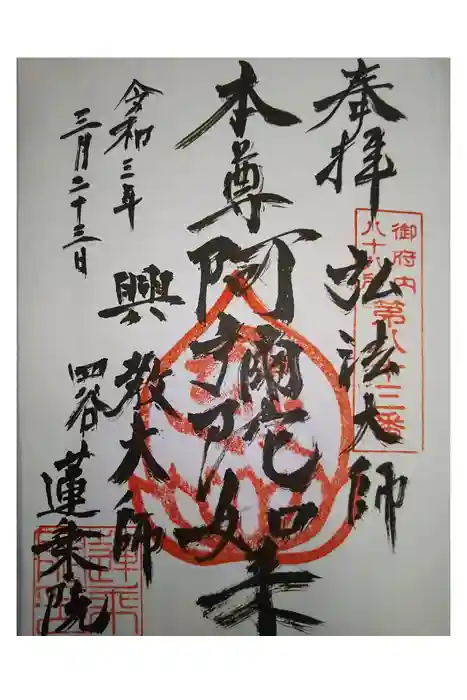 奉拝
弘法大師
御府内
八十八ヶ所
第八十三番
本尊阿彌陀如来
興教大師
令和三年
三月二十三日
四谷
蓮乗院